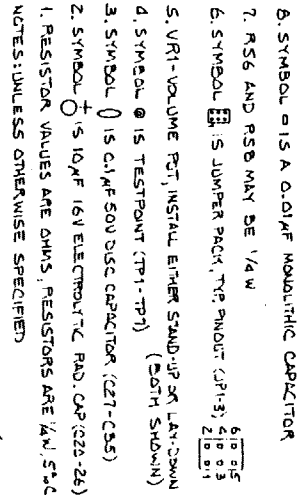 8. SYMBOL IS A 0.01µF MONOLITHIC CAPACITOR
7. R56 AND R58 MAY BE 1/4 W
6. SYMBOL IS JUMPER PACK, TYP. PINOUT (JP1-3)
6 5
4 3
2 1
5. VR1-VOLUME POT, INSTALL EITHER STAND-UP OR LAY-DOWN
(BOTH SHOWN)
4. SYMBOL IS TESTPOINT (TP1-TP7)
3. SYMBOL IS 0.1µF 50V DISC CAPACITOR (C27-C35)
2. SYMBOL + IS 10µF 16V ELECTROLYTIC RAD. CAP (C20-26)
1. RESISTOR VALUES ARE OHMS; RESISTORS ARE 1/4W, 5%
NOTES: UNLESS OTHERWISE SPECIFIED